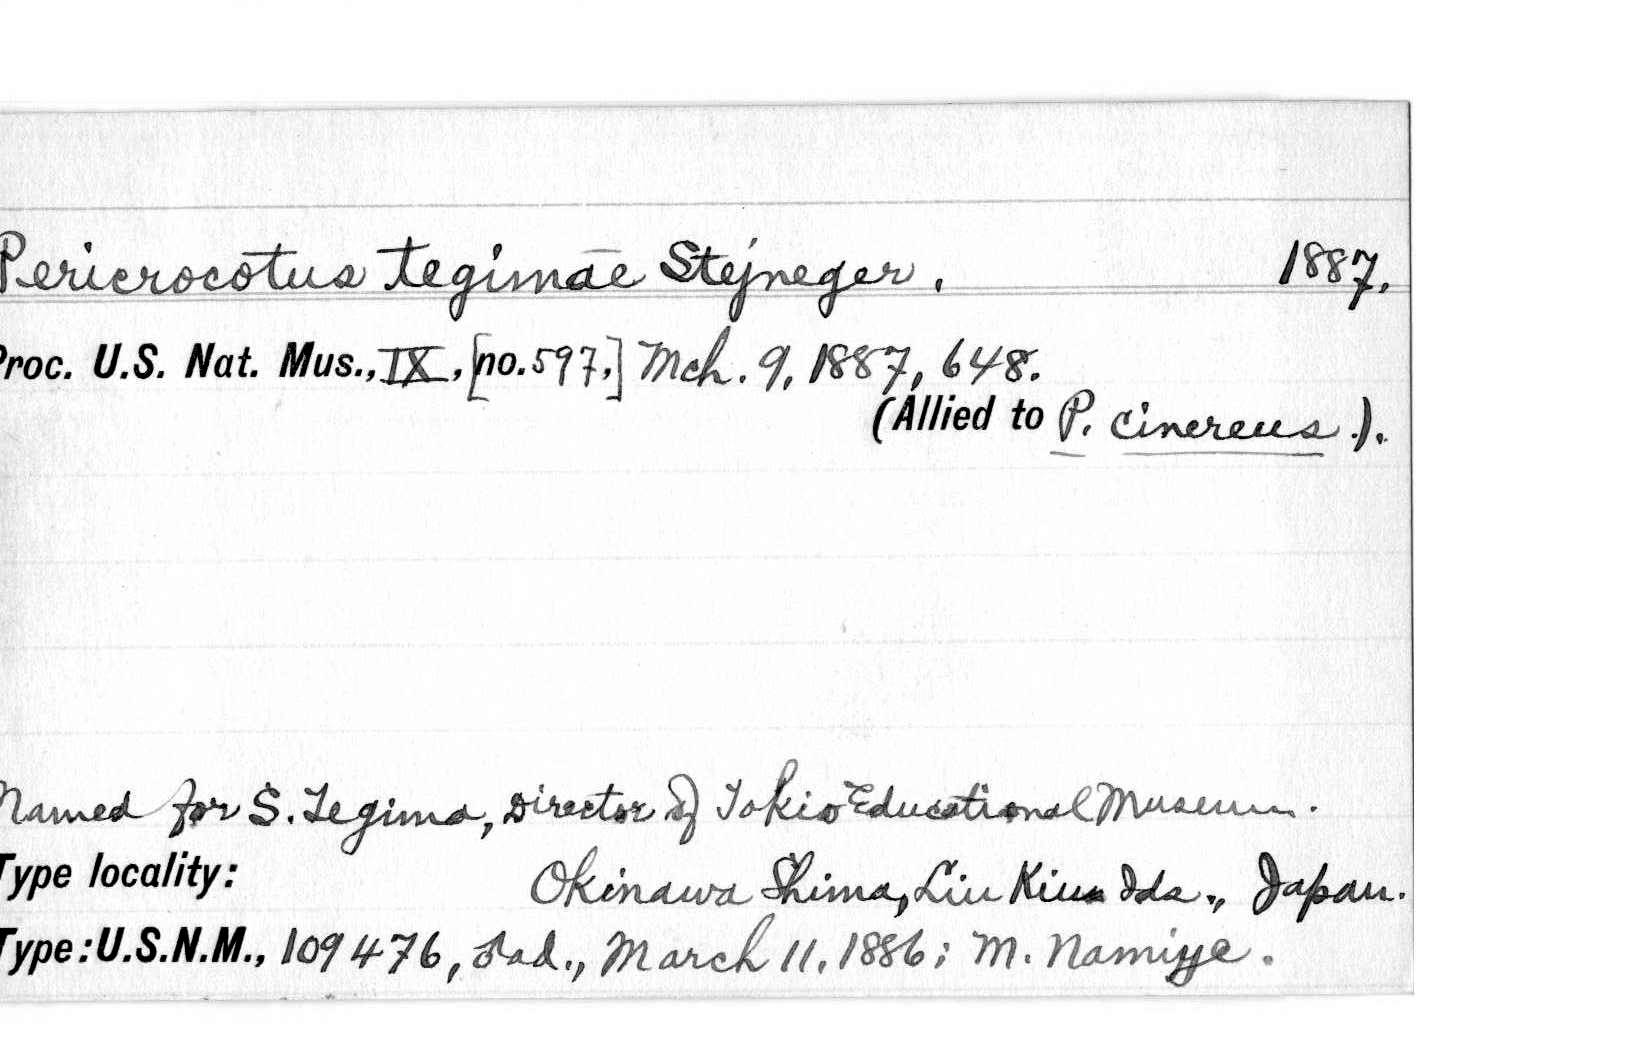 Pericrocotus tegimae Stejneger. 1887.
Proc. U.S. Nat. Mus., IX, [no. 597,] Mch. 9, 1887, 648.
(Allied to P. cinereus.).
Named for S. Tegima, Director of Tokio Educational Museum.
Type locality: Okinawa Shima, Liu Kiu Ids., Japan.
Type: U.S.N.M., 109476, ad., March 11, 1886; M. Namiye.